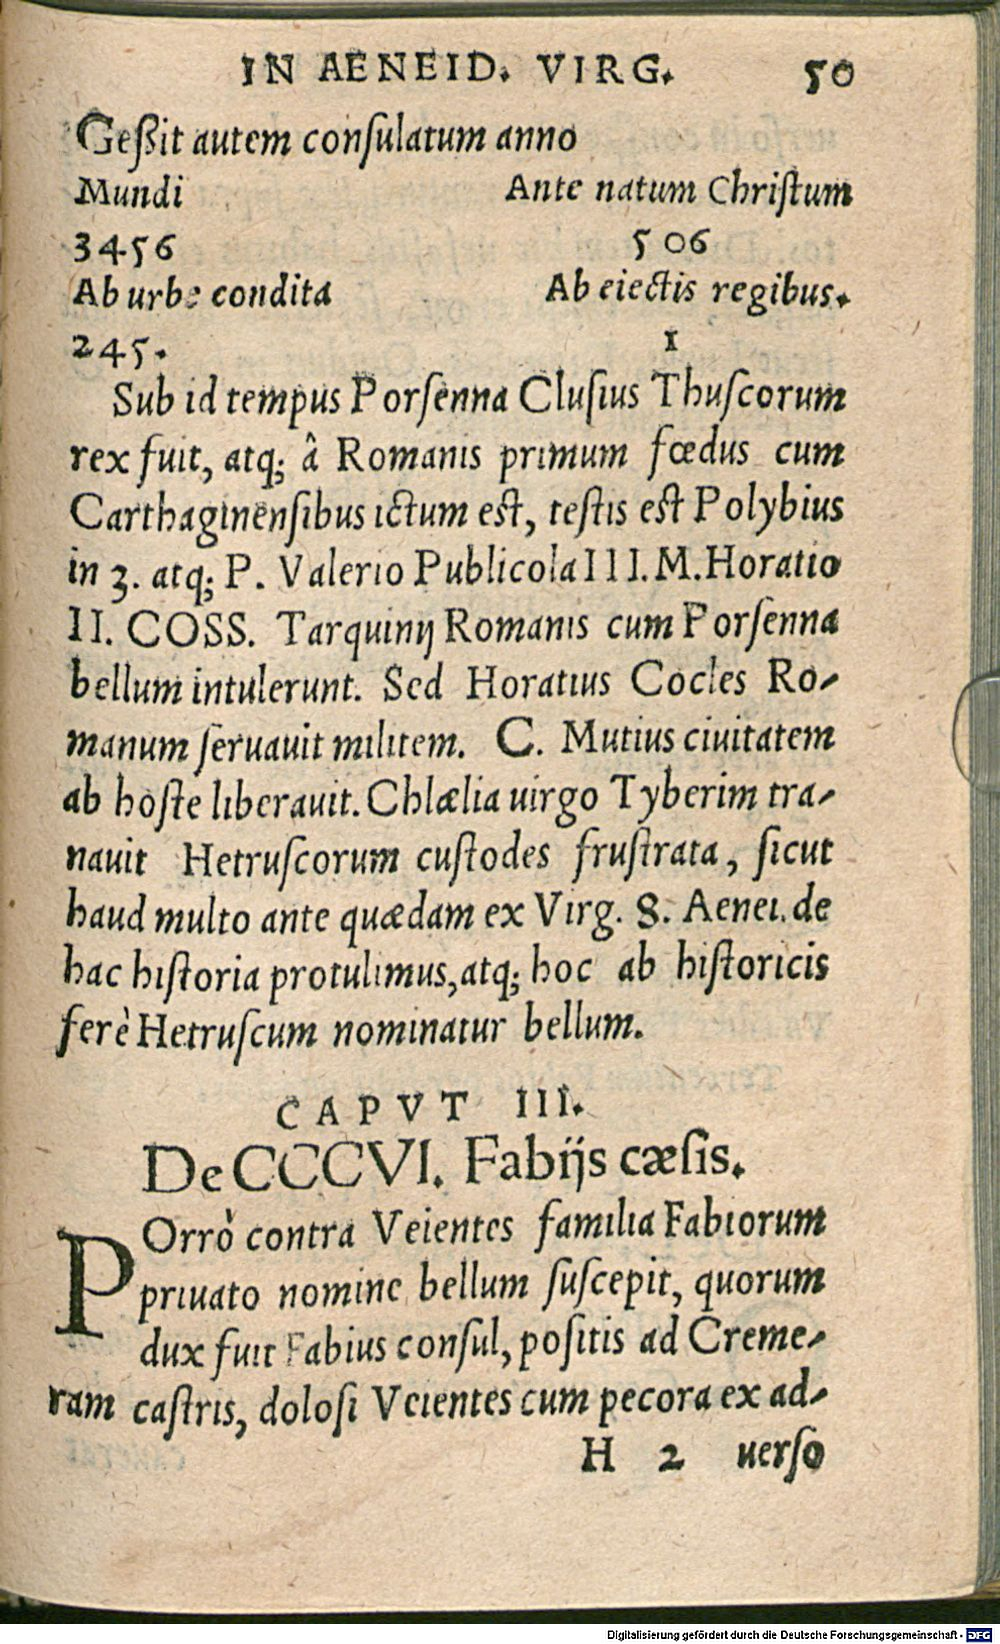 IN AENEID. VIRG. 50
Geßit autem conſulatum anno
Mundi Ante natum Chriſtum
3456 506
Ab urbe condita Ab eiectis regibus.
245. 1
Sub id tempus Porſenna Cluſius Thuſcorum
rex fuit, atq; â Romanis primum fœdus cum
Carthaginenſibus ictum eſt, teſtis eſt Polybius
in 3. atq; P. Valerio Publicola III. M. Horatio
II. COSS. Tarquinij Romanis cum Porſenna
bellum intulerunt. Sed Horatius Cocles Ro-
manum ſeruauit militem. C. Mutius ciuitatem
ab hoſte liberauit. Chlælia uirgo Tyberim tra-
nauit Hetruſcorum cuſtodes fruſtrata, ſicut
haud multo ante quædam ex Virg. 8. Aenei. de
hac hiſtoria protulimus, atq; hoc ab hiſtoricis
ferè Hetruſcum nominatur bellum.
CAPVT III.
De CCCVI. Fabijs cæſis.
POrrò contra Veientes familia Fabiorum
priuato nomine bellum ſuſcepit, quorum
dux fuit Fabius conſul, poſitis ad Creme-
ram caſtris, doloſi Veientes cum pecora ex ad-
H 2 uerſo
Digitalisierung gefördert durch die Deutsche Forschungsgemeinschaft - DFG